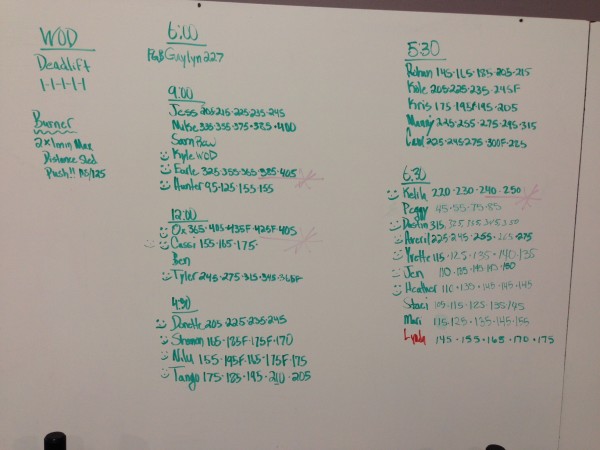 WOD
Deadlift
1-1-1-1-1
Burner
2x1min Max
Distance Sled
Push!! 175/125
6:00
Guylyn 227
9:00
Jess 205·215·225·235·245
Mike 335·355·375·385·400
Sam Row
Kyle WOD
Earle 325·355·365·385·405
Hunter 95·125·155·155
12:00
Ox 365·405·435F·425F·405
Cassi 155·165·175·
Ben
Tyler 245·275·315·345·365F
4:30
Danette 205·225·235·245
Shannan 165·185·175F·170
Nily 155·195F·165·175F·175
Tango 175·185·195·210·205
5:30
Rohan 145·165·185·205·215
Kyle 205·225·235·245F
Kris 175·195·195·205
Manny 225·255·275·295·315
Carol 225·245·275·300F·285
6:30
Kelik 220·230·240·250
Peggy 45·55·75·85
Dustin 315
Averil 225·245·255·265·275
Yvette 115·125·135·140·135
Jen 110·135·145·145·150
Heather 110·135·145·145·145
Staci 115·115·125·135/45
Mari 115·125·135·145·155
Lynda 145·155·165·170·175